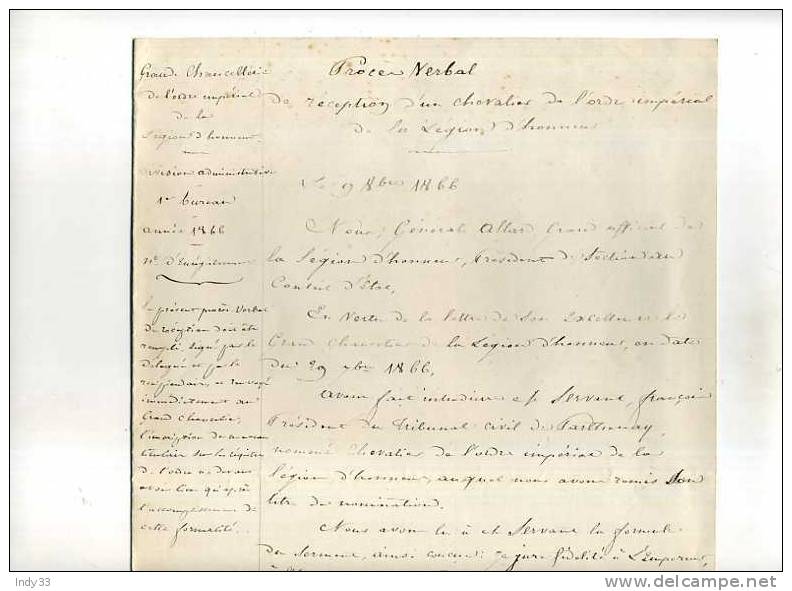 Grande Chancellerie
de l'ordre impérial
de la
Légion d'honneur.
Division administrative
1er bureau
année 1866
No. d'Enrégistrement
Le présent procès Verbal
de réception doit être
rempli, signé par le
délégué et par le
récipiendaire, et renvoyé
immédiatement au
Grand Chancelier,
l'inscription du nouveau
titulaire sur les Registres
de l'ordre ne devant
avoir lieu qu'après
l'accomplissement de
cette formalité.
Procès Verbal
de réception d'un chevalier de l'ordre impérial
de la Légion d'honneur
Le 9 8bre 1866
Nous, Général Allard Grand officier de
la Légion d'honneur, Président de Section au
Conseil d'État,
En Vertu de la lettre de Son Excellence le
Grand Chancelier de la Légion d'honneur, en date
du 29 7bre 1866,
avons fait introduire Servant, françois
Président du Tribunal civil de Parthenay,
nommé Chevalier de l'ordre impérial de la
Légion d'honneur, auquel nous avons remis Son
titre de nomination.
Nous avons lu à Servant la formule
du Serment, ainsi conçue: Je jure fidélité à L'Empereur,
Indy33
www.delcampe.net